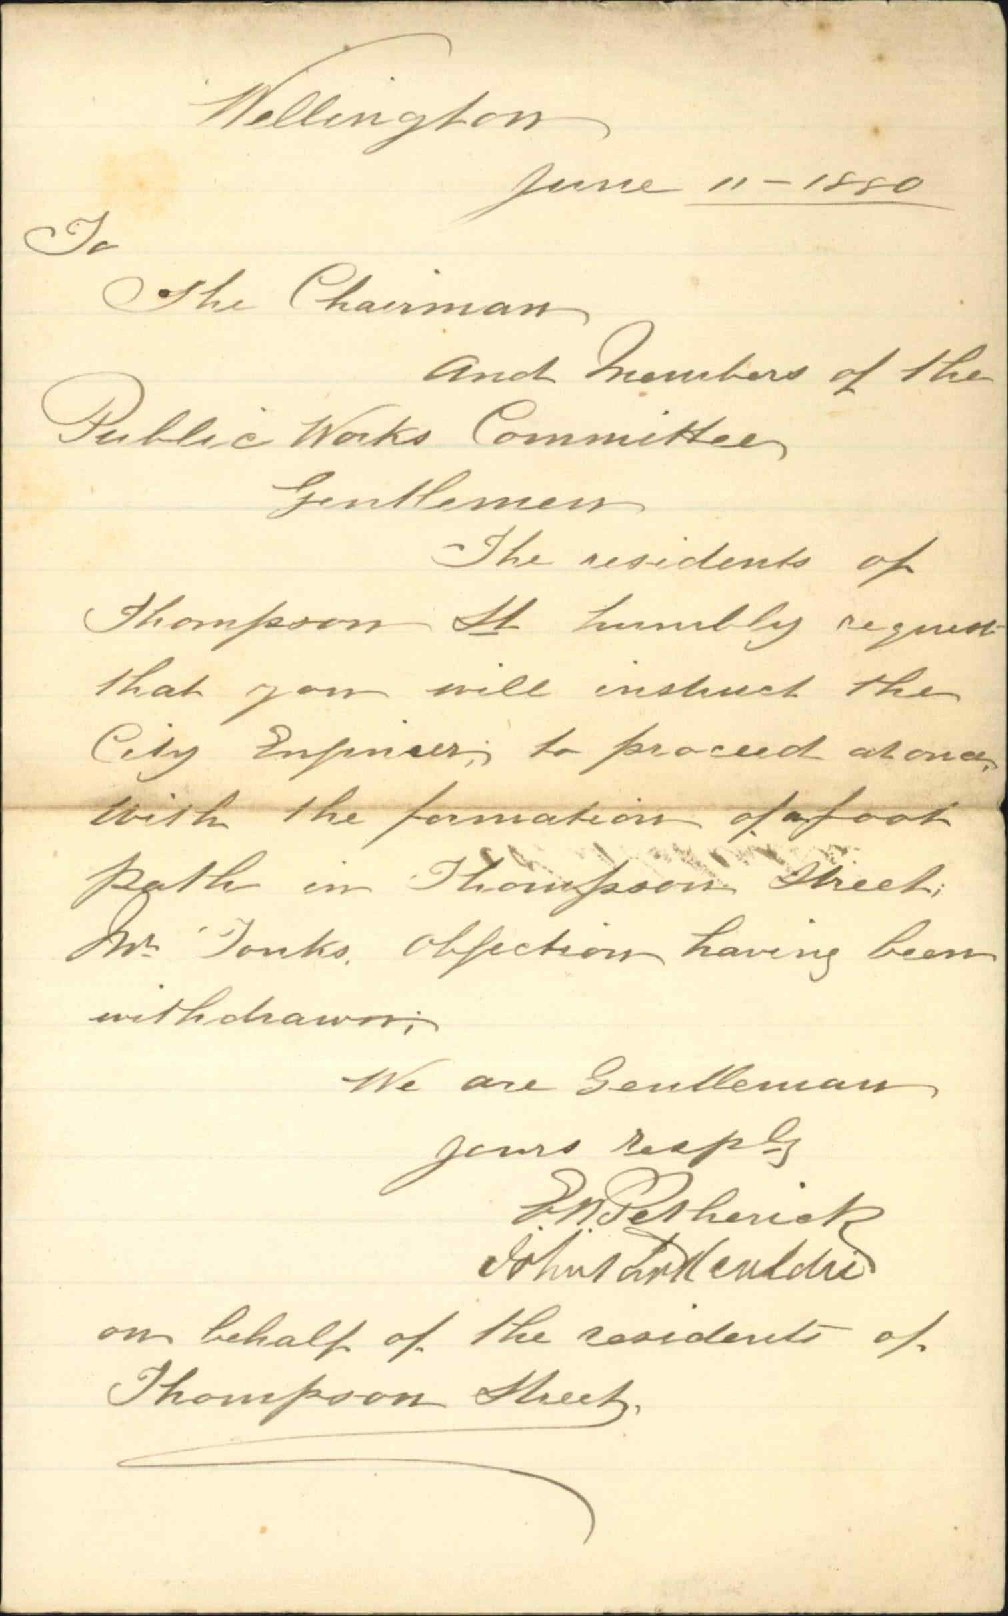 Wellington
June 11 - 1880
To
The Chairman
and Members of the
Public Works Committee
Gentlemen
The residents of
Thompson St humbly request
that you will instruct the
City Engineer, to proceed at once,
with the formation of a foot
path in Thompson Street;
Mr Tonks. Objection having been
withdrawn;
We are Gentleman
yours resply
E.W. Petherick
John
on behalf of the residents of
Thompson Street.